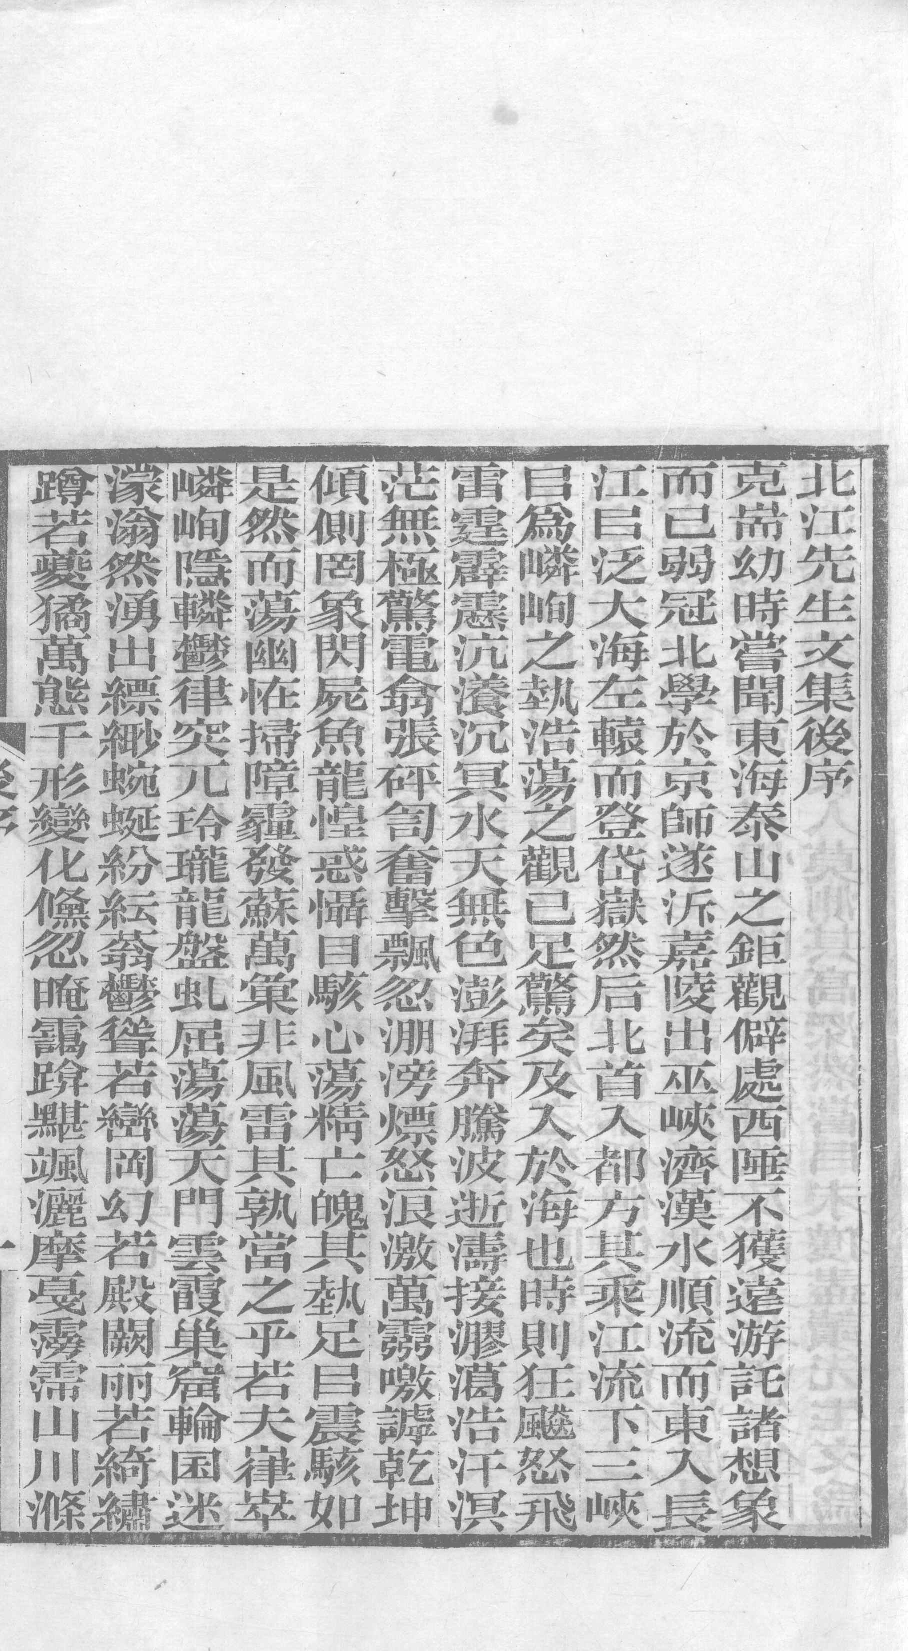 北江先生文集後序
克耑幼時嘗聞東海泰山之鉅觀僻處西陲不獲遠游託諸想象
而已弱冠北學於京師遂泝嘉陵出巫峽濟漢水順流而東入長
江㠯泛大海左轅而登岱嶽然后北首入都方其乘江流下三峽
㠯爲嶙峋之埶浩蕩之觀已足驚矣及入於海也時則狂飈怒飛
雷霆霹靂沆瀁沉冥水天無色澎湃奔騰波逝濤接漻㵧浩汗溟
茫無極驚電翕張砰訇奮擊飄忽淜滂熛怒浪激萬竅噭謼乾坤
傾側罔象閃屍魚龍惶惑懾目駭心蕩精亡魄其埶足㠯震駭如
是然而蕩幽怪掃障霾發蘇萬彙非風雷其孰當之乎若夫嵂崒
嶙峋隱轔鬱律突兀玲瓏龍盤虬屈蕩蕩天門雲霞巢窟輪囷迷
濛滃然湧出縹緲蜿蜒紛紜蓊鬱聳若巒岡幻若殿闕丽若綺繡
蹲若夔獝萬態千形變化儵忽晻靄跱颯灑摩戛霶霈山川滌
後序
一